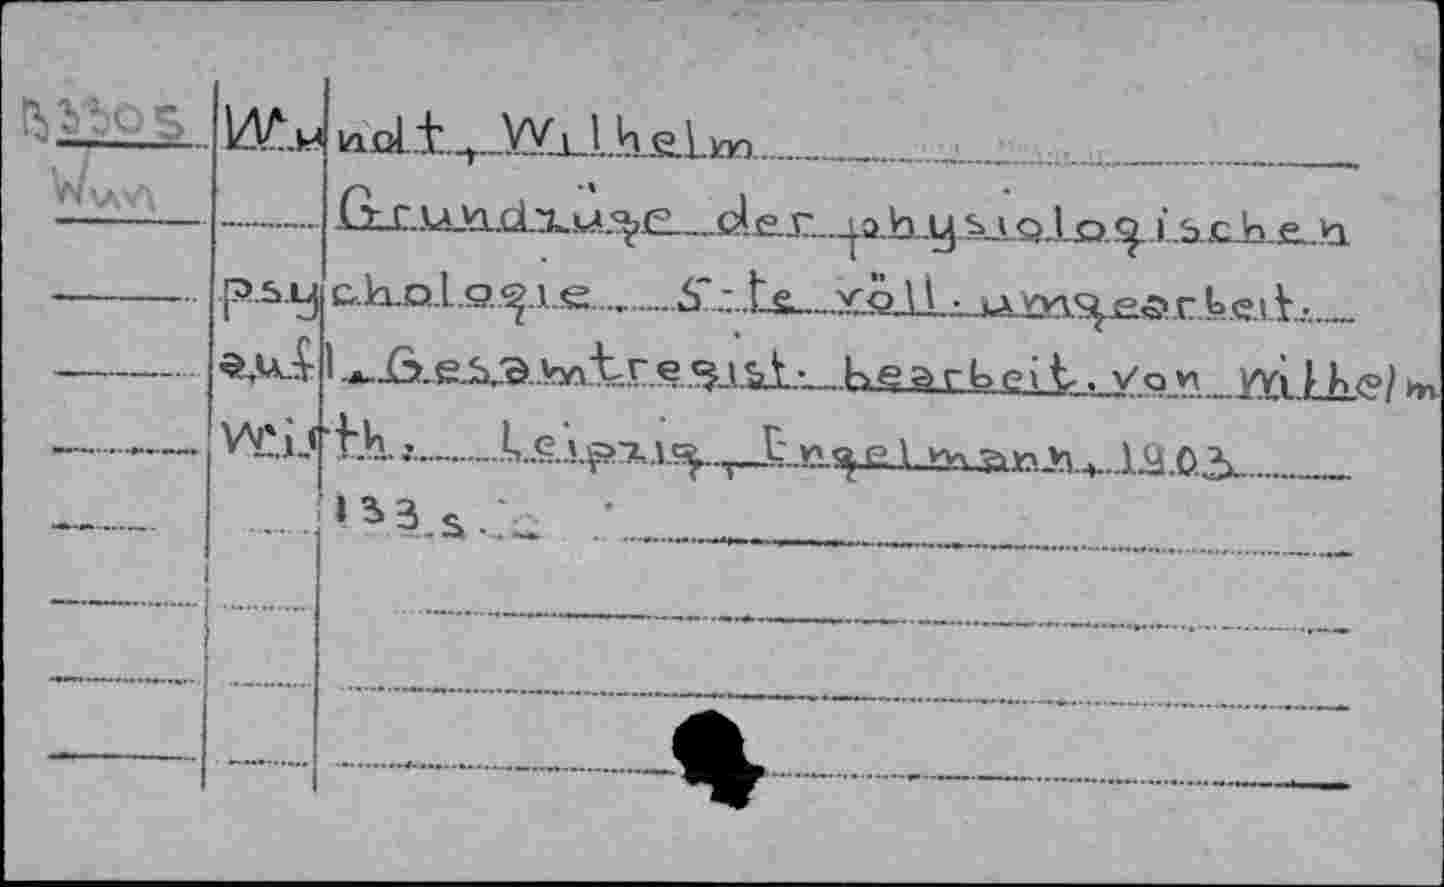 Wundt, Wilhelm
Wun
Grundzüge der physiologischen
psychologie. 5-te völl. umgearbeit.
aufl. Gesamtregist. bearbeit. von Wilhelm
Wirth. Leipzig, Engelmann, 1903
133 s.